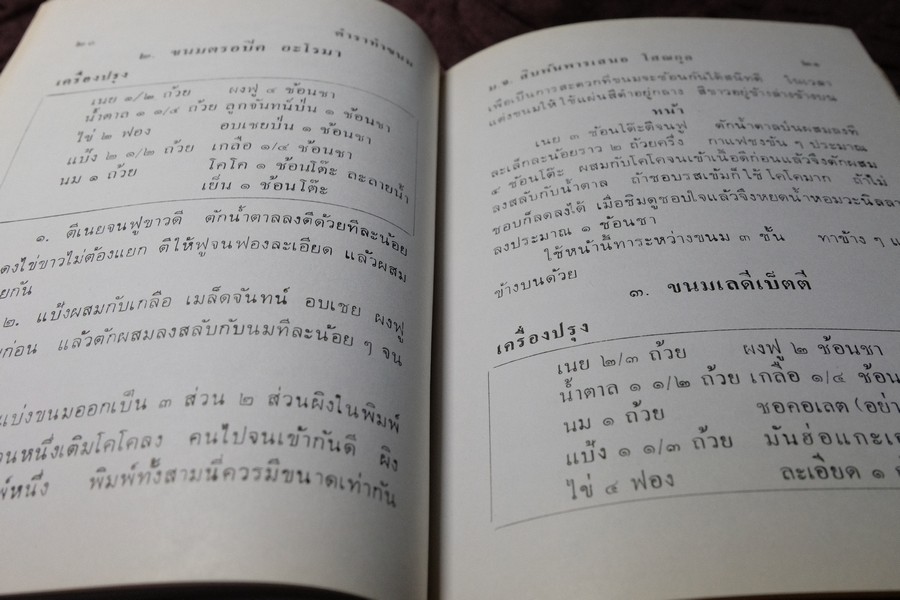 ๒๐ ตำราทำขนม
๒. ขนมตรอบิค อะโรมา
เครื่องปรุง
เนย ๑/๒ ถ้วย ผงฟู ๔ ช้อนชา
น้ำตาล ๑ ๑/๔ ถ้วย ลูกจันทน์ป่น ๑ ช้อนชา
ไข่ ๒ ฟอง อบเชยป่น ๑ ช้อนชา
แป้ง ๒ ๑/๒ ถ้วย เกลือ ๑/๔ ช้อนชา
นม ๑ ถ้วย โคโค ๑ ช้อนโต๊ะ ละลายน้ำ
เย็น ๑ ช้อนโต๊ะ
๑. ตีเนยจนฟูขาวดี ตักน้ำตาลลงตีด้วยทีละน้อย
ไข่ขาวไม่ต้องแยก ตีให้ฟูจนฟองละเอียด แล้วผสม
กัน
๒. แป้งผสมกับเกลือ เมล็ดจันทน์ อบเชย ผงฟู
ก่อน แล้วตักผสมลงสลับกับนมทีละน้อย ๆ จน
แบ่งขนมออกเป็น ๓ ส่วน ๒ ส่วนผิงในพิมพ์
หนึ่งเติมโคโคลง คนไปจนเข้ากันดี ผิง
หนึ่ง พิมพ์ทั้งสามนี้ควรมีขนาดเท่ากัน
ม.จ. สืบพันพารเสนอ โสณกุล ๒๑
เพื่อเป็นการสะดวกที่ขนมจะซ้อนกันได้สนิทดี ในเวลา
แต่งขนมให้ใช้แผ่นสีดำอยู่กลาง สีขาวอยู่ข้างล่างข้างบน
หน้า
เนย ๓ ช้อนโต๊ะตีจนฟู ตักน้ำตาลป่นผสมลงที
ละเล็กละน้อยราว ๒ ถ้วยครึ่ง กาแฟชงข้น ๆ ประมาณ
๔ ช้อนโต๊ะ ผสมกับโคโคจนเข้าเนื้อดีก่อนแล้วจึงตักผสม
ลงสลับกับน้ำตาล ถ้าชอบรสเข้มก็ใช้โคโคมาก ถ้าไม่
ชอบก็ลดลงได้ เมื่อชิมดูชอบใจแล้วจึงหยดน้ำหอมวะนิลลา
ลงประมาณ ๑ ช้อนชา
ใช้หน้านี้ทาระหว่างขนม ๓ ชั้น ทาข้าง ๆ
ข้างบนด้วย
๓. ขนมเลดีเบ็ตตี
เครื่องปรุง
เนย ๒/๓ ถ้วย ผงฟู ๒ ช้อนชา
น้ำตาล ๑ ๑/๒ ถ้วย เกลือ ๑/๔ ช้อน
นม ๑ ถ้วย ชอคอเลต (อย่า
แป้ง ๑ ๑/๓ ถ้วย มันฮ่อแกะเ
ไข่ ๔ ฟอง ละเอียด ๑